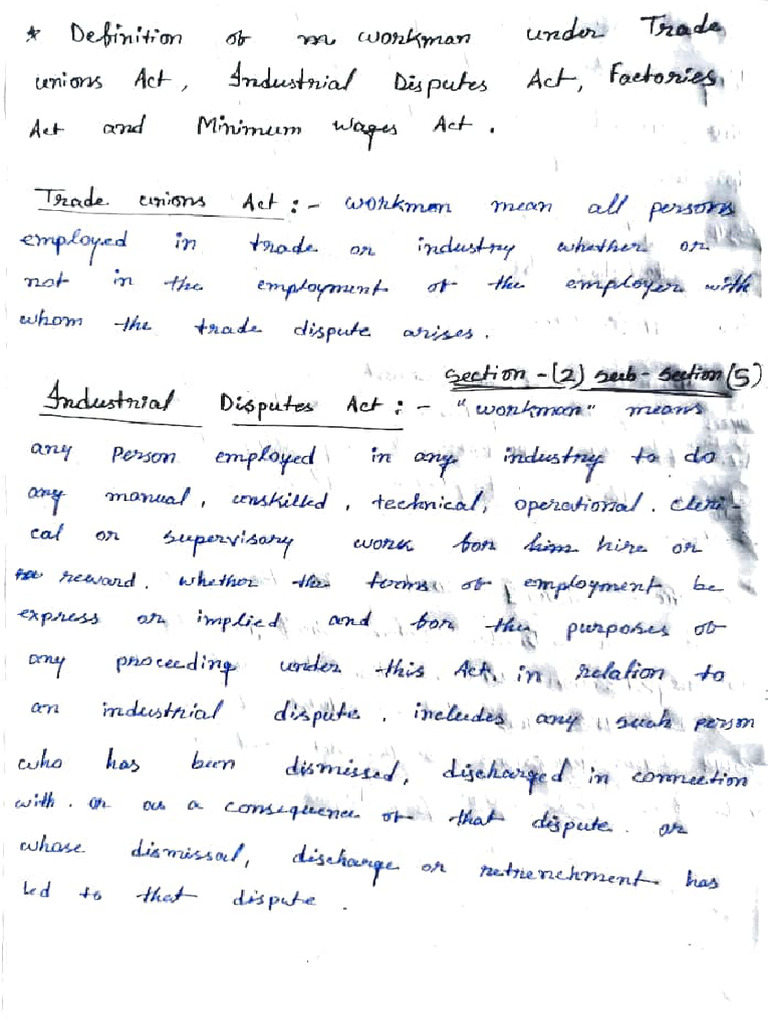 * Definition of m workman under Trade
unions Act, Industrial Disputes Act, Factories
Act and Minimum wages Act.
Trade unions Act :- workmen mean all persons
employed in trade or industry whether or
not in the employment of the employer with
whom the trade dispute arises.
Section - (2) sub-section (S)
Industrial Disputes Act :- "workman" means
any person employed in any industry to do
any manual, unskilled, technical, operational. cleri-
cal or supervisory work for him hire or
reward. whether the terms of employment be
express or implied and for the purposes of
any proceeding under this Act, in relation to
an industrial dispute. includes any such person
who has been dismissed, discharged in connection
with. or as a consequence of that dispute. or
whose dismissal, discharge or retrenchment has
led to that dispute.